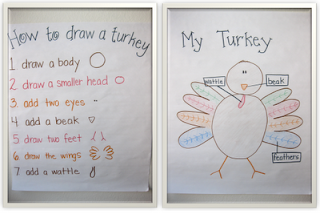 How to draw a turkey
1 draw a body
2 draw a smaller head
3 add two eyes
4 add a beak
5 draw two feet
6 draw the wings
7 add a wattle
My Turkey
wattle
beak
feathers